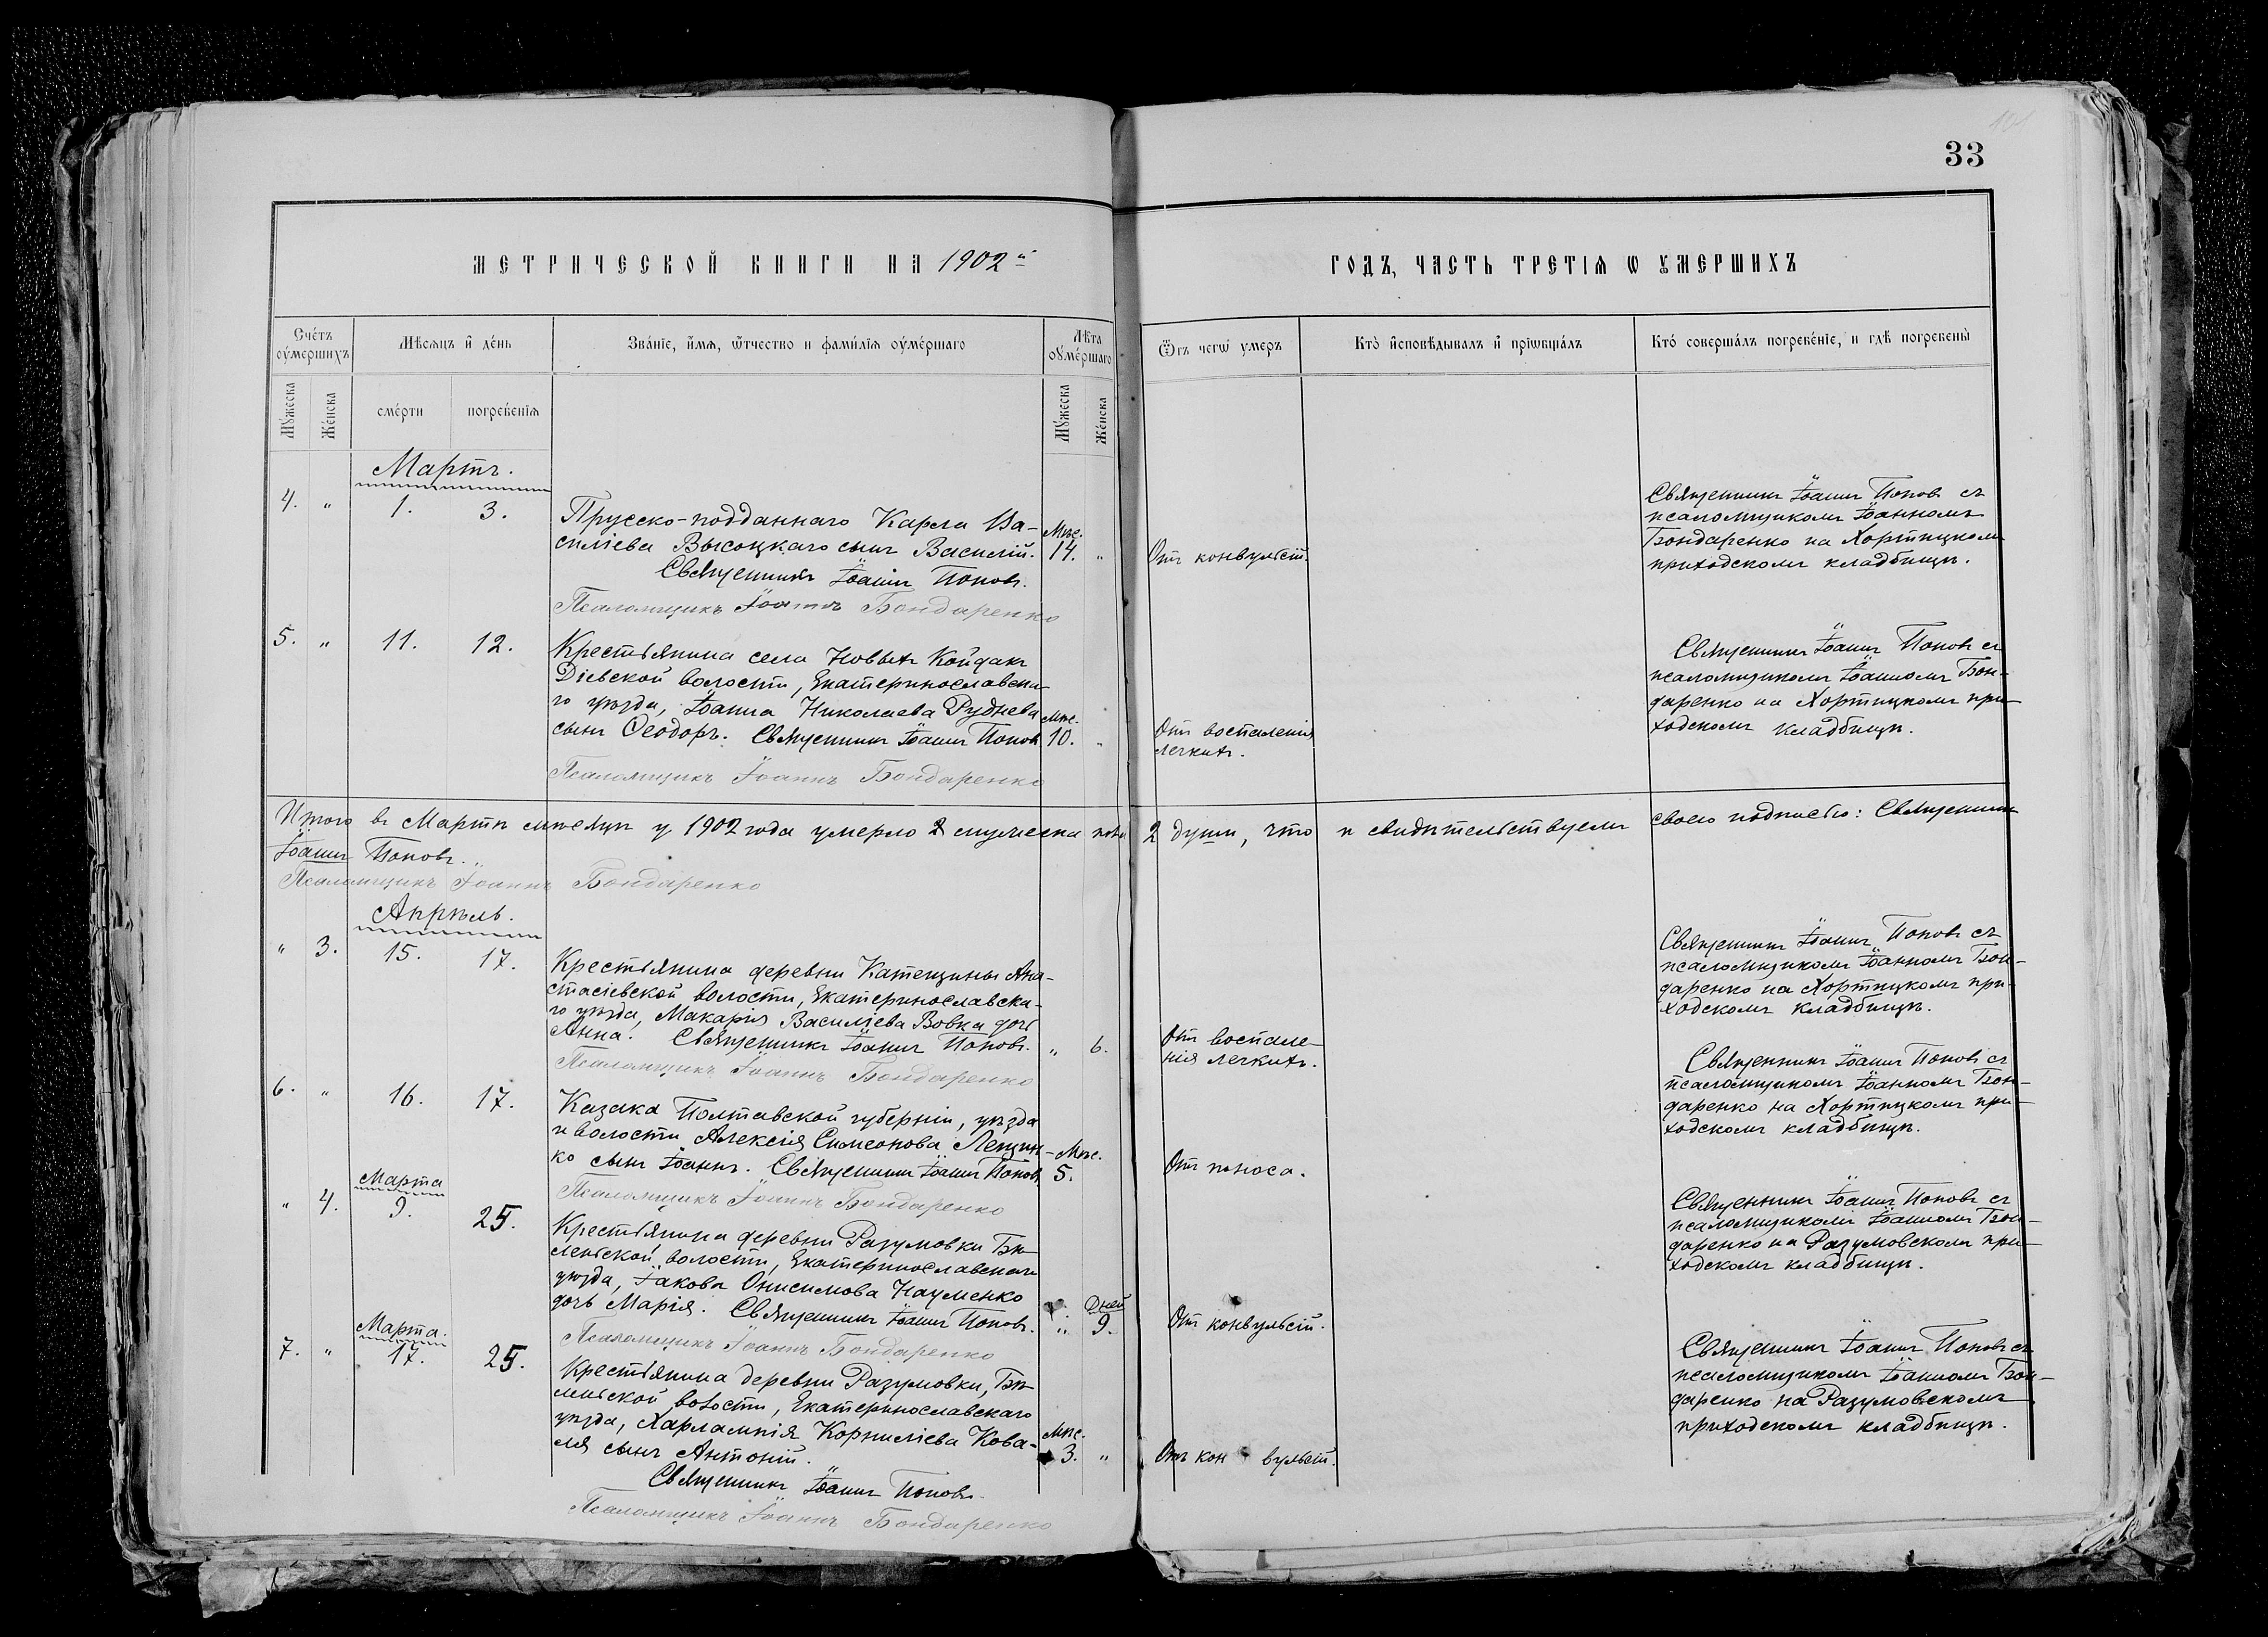 33
МЕТРИЧЕСКОЙ КНИГИ НА 1902й
ГОДЪ, ЧАСТЬ ТРЕТІѦ Ѡ ОУМЕРШИХЪ
Счетъ оумершихъ
Мѣсяцъ и день
Званіе, имя, отчество и фамилія оумершаго
Лѣта оумершаго
Отъ чегѡ умеръ
Кто исповѣдывалъ и пріѡбщалъ
Кто совершалъ погребеніе, и гдѣ погребены
Мужеска
Женска
смерти
погребенія
Мужеска
Женска
Мартъ.
4. " 1. 3.
Прусско-подданнаго Карла Ва-
силіева Высоцкаго сынъ Василій.
Священникъ Іоаннъ Поповъ.
Псаломщикъ Іоаннъ Бондаренко
Мѣс.
14. "
Отъ конвульсій.
Священникъ Іоаннъ Поповъ съ
псаломщикомъ Іоанномъ
Бондаренко на Хортицкомъ
приходскомъ кладбищѣ.
5. " 11. 12.
Крестьянина села Новыхъ Койдакъ
Діевской волости, Екатеринославска-
го уѣзда, Іоанна Николаева Руднева
сынъ Ѳеодоръ. Священникъ Іоаннъ Поповъ
Псаломщикъ Іоаннъ Бондаренко
Мѣс.
10. "
Отъ воспаленія
легкихъ.
Священникъ Іоаннъ Поповъ съ
псаломщикомъ Іоанномъ Бон-
даренко на Хортицкомъ при-
ходскомъ кладбищѣ.
Итого въ Мартѣ мѣсяцѣ 1902 года умерло 2 мужеска пола 2 души, что и свидѣтельствуемъ своею подписью: Священникъ
Іоаннъ Поповъ.
Псаломщикъ Іоаннъ Бондаренко
Апрѣль.
" 3. 15. 17.
Крестьянина деревни Катещины Ана-
стасіевской волости, Екатеринославска-
го уѣзда, Макарія Василіева Вовка дочь
Анна. Священникъ Іоаннъ Поповъ.
Псаломщикъ Іоаннъ Бондаренко
" 6.
Отъ воспале-
нія легкихъ.
Священникъ Іоаннъ Поповъ съ
псаломщикомъ Іоанномъ Бон-
даренко на Хортицкомъ при-
ходскомъ кладбищѣ.
6. " 16. 17.
Казака Полтавской губерніи, уѣзда
и волости Алексія Симеонова Лещен-
ко сынъ Іоаннъ. Священникъ Іоаннъ Поповъ
Псаломщикъ Іоаннъ Бондаренко
Мѣс.
5.
Отъ поноса.
Священникъ Іоаннъ Поповъ съ
псаломщикомъ Іоанномъ Бон-
даренко на Хортицкомъ при-
ходскомъ кладбищѣ.
Марта
" 4. 9. 25.
Крестьянина деревни Разумовки Бѣ-
ленской волости, Екатеринославскаго
уѣзда, Іакова Онисимова Науменко
дочь Марія. Священникъ Іоаннъ Поповъ.
Псаломщикъ Іоаннъ Бондаренко
Дней
" 9.
Отъ конвульсій.
Священникъ Іоаннъ Поповъ съ
псаломщикомъ Іоанномъ Бон-
даренко на Разумовскомъ при-
ходскомъ кладбищѣ.
Марта.
7. " 17. 25.
Крестьянина деревни Разумовки, Бѣ-
ленской волости, Екатеринославскаго
уѣзда, Харлампія Корниліева Кова-
ля сынъ Антоній.
Священникъ Іоаннъ Поповъ.
Псаломщикъ Іоаннъ Бондаренко
Мѣс.
3. "
Отъ конвульсій.
Священникъ Іоаннъ Поповъ съ
псаломщикомъ Іоанномъ Бон-
даренко на Разумовскомъ
приходскомъ кладбищѣ.